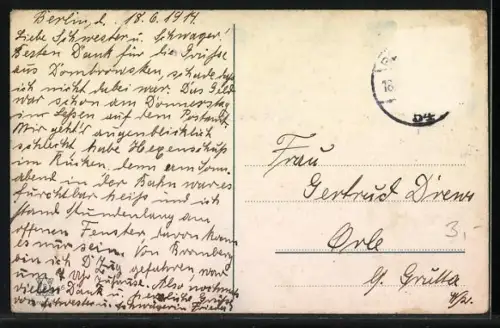 Berlin, d. 18.6.1914.
Liebe Schwester u. Schwager!
Besten Dank für die Grüße
aus Dombrowsken, schade daß
ich nicht dabei war. Das Geld
war schon am Donnerstag
in Leßen auf dem Postamt.
Mir geht's augenblicklich
schlecht habe Hexenschuß
im Rücken, denn am Sonn-
abend in der Bahn war es
furchtbar heiß und ich
stand stundenlang am
offnen Fenster, davon kann
es nur sein. Von Bromberg
bin ich D Zug gefahren war
um 7 Uhr zuhause. Also nochmals
vielen Dank u. herzliche Grüße
von Schwester und Schwägerin
Frau
Gertrud Drews
Orle
b/ Grutta
W/Pr.
3,-